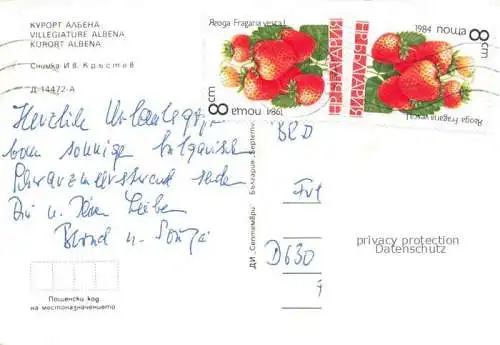 КУРОРТ АЛБЕНА
VILLEGIATURE ALBENA
KURORT ALBENA
Снимка Ив. Кръстев
Д-14472-А
Ягода Fragaria vesca L
БЪЛГАРИЯ
8 cm
поща 1984
Ягода Fragaria vesca L
БЪЛГАРИЯ
8 cm
поща 1984
Herzliche Urlaubsgrüße
vom sonnigen bulgarischen
Schwarzmeerstrand senden
Dir u. Deinen Lieben
Bernd u. Sonja
BRD
D630
ДИ „Септември" България
privacy protection
Datenschutz
Пощенски код
на местоназначението